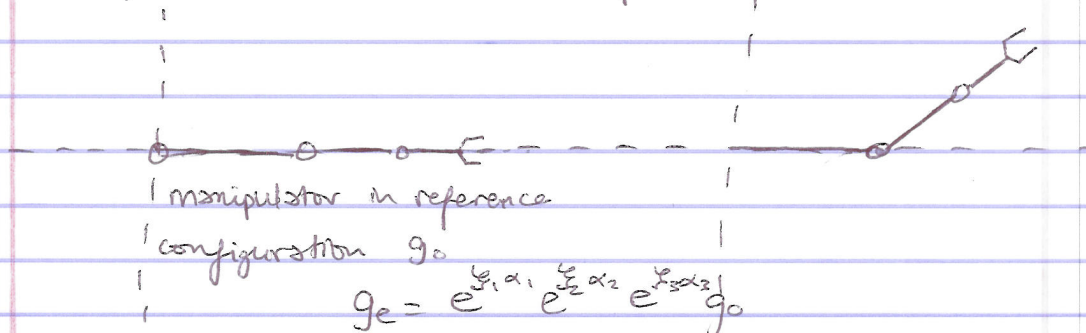 manipulator in reference
configuration g₀
gₑ = e^{ξ₁α₁} e^{ξ₂α₂} e^{ξ₃α₃} g₀